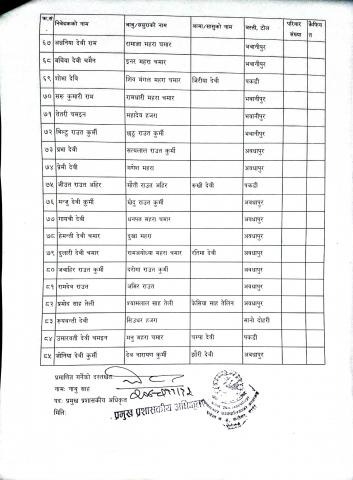 क्र.सं निवेदकको नाम बाबु/ससुराको नाम आमा/सासुको नाम बस्ती, टोल परिवार संख्या कैफियत
६७ अन्तनिया देवी राम रामाज्ञा महरा चमार भवानीपुर
६८ बधिया देवी चमैन इनर महरा चमार भवानीपुर
६९ शोभा देवि शिव मंगल महरा चमार जिरीया देवी पकडी
७० सरु कुमारी राम रामधारी महरा चमार भवानीपुर
७१ तेतरी चमइन महादेव हजरा भवानीपुर
७२ बिल्टु राउत कुर्मी छठु राउत कुर्मी भवानीपुर
७३ प्रभा देवी सत्यलाल राउत कुर्मी अवधापुर
७४ प्रेमी देवी गणेश महरा अवधापुर
७५ जीउत राउत अहिर मौती राउत अहिर रुखी देवी पकडी
७६ मन्जु देवी कुर्मी छेदु राउत कुर्मी अवधापुर
७७ गायत्री देवी धनपत महरा चमार अवधापुर
७८ हेमन्ती देवी चमार दुखा महरा अवधापुर
७९ दुलारी देवी चमार रामअयोध्या महरा चमार रतिया देवी अवधापुर
८० जवाहिर राउत कुर्मी दरोगा राउत कुर्मी अवधापुर
८१ रामदेव राउत अबिर राउत अवधापुर
८२ प्रमोद साह तेली श्यामलाल साह तेली केसिया साह तेलिन अवधापुर
८३ रूपवन्ती देवी सिउधर हजरा सानो दोहरी
८४ उमरावती देवी चमइन मनु महरा चमार पम्पा देवी पकडी
८५ जोनिया देवी कुर्मी देव नारायण कुर्मी झौरी देवी अवधापुर
प्रमाणित गर्नेको दस्तखत
नामः बाबु साह
पदः प्रमुख प्रशासकीय अधिकृत
मितिः
प्रमुख प्रशासकीय अधिकृत